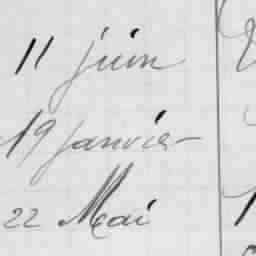 11 juin
19 janvier
22 Mai